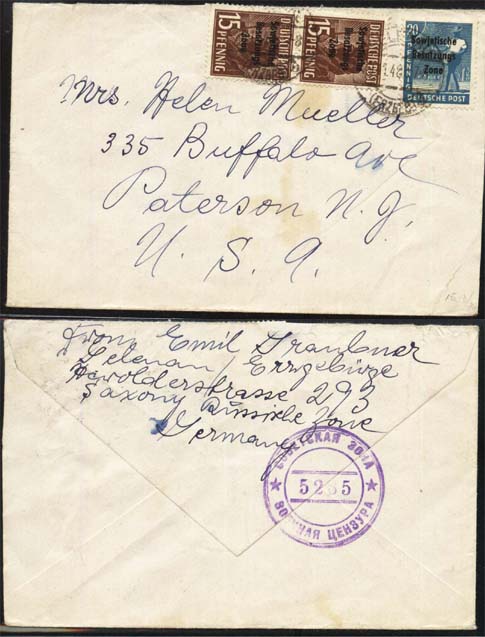 15 DEUTSCHE POST
PFENNIG
Sowjetische
Besatzungs
Zone
15 DEUTSCHE POST
PFENNIG
Sowjetische
Besatzungs
Zone
20
PFENNIG
Sowjetische
Besatzungs
Zone
DEUTSCHE POST
(ERZGEB
Mrs. Helen Mueller
335 Buffalo Ave
Paterson N. J.
U. S. A.
From, Emil Traubner
Lelenau / Erzgebirge
293
Saxony Russische Zone
Germany
СОВЕТСКАЯ ЗОНА
5235
ВОЕННАЯ ЦЕНЗУРА